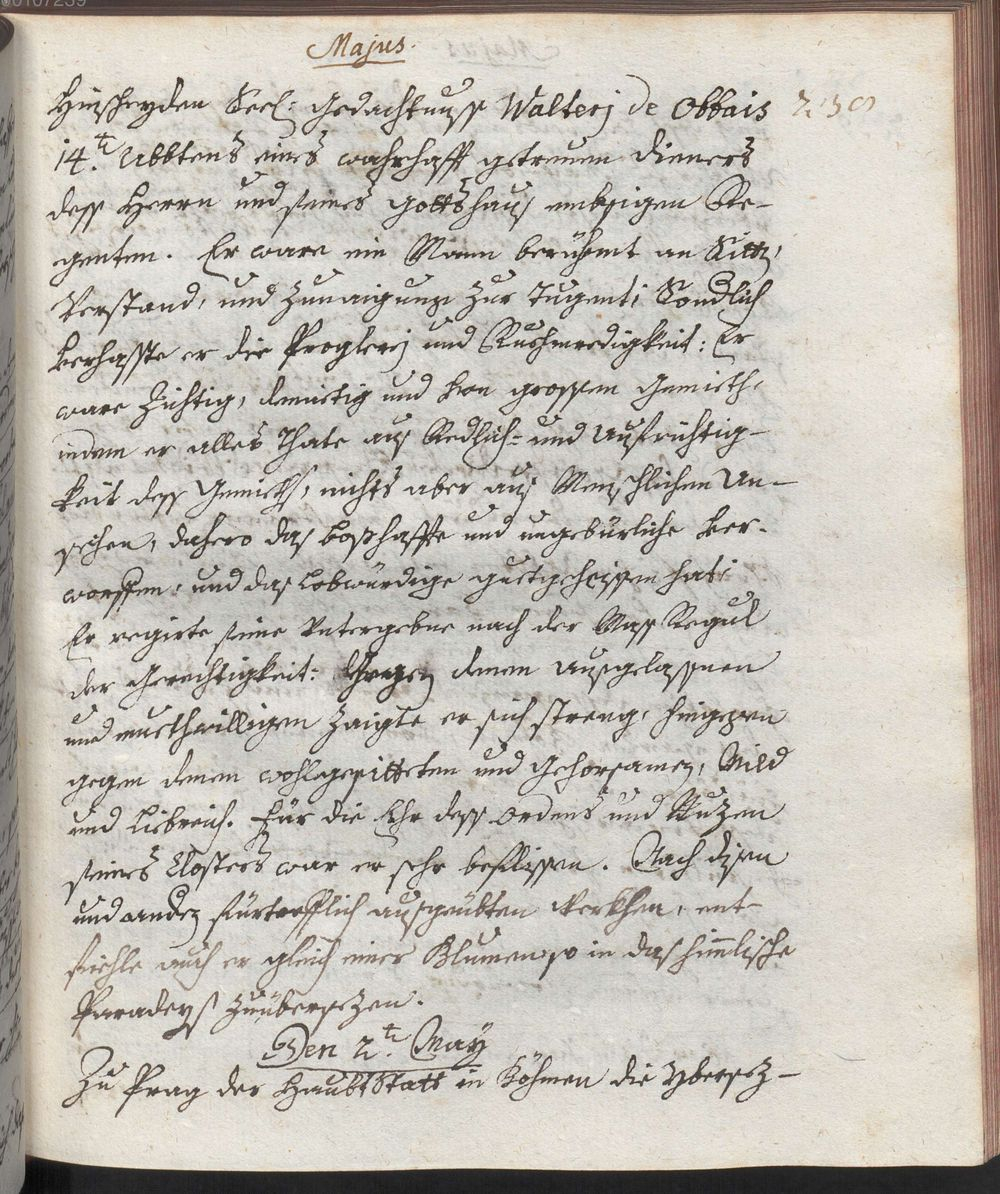 Majus.
Hinscheyden Seel: gedachtnuss Walterj de Obbais
14.t Abbtens eines wahrhafft getreuen Dieners
dess Herrn und seines Gottshaus embsigen Re-
genten. Er ware ein Mann berühmt an Sitten,
Verstand, und Zunaigung zur Tugent; Sondlich
verhasste er die Proglerej und Ruhmredigkeit: Er
ware Zichtig, demietig und von grossem Gemieth,
indem er alles thate aus Redlich= und Aufrichtig-
keit dess Gemieths, nichts aber aus Menschlichen An-
sehen, dahero das boshaffte und ungebürliche ver-
worffen, und das Lobwürdige guetgeheissen hat:
Er regirte seine Untergebne nach der Mass Regul
der Gerechtigkeit: Gegen denen Ausgelassnen
und muethwilligen Zaigte er sich streng, hingegen
gegen denen wohlgesitteten und gehorsamen, Mild
und Liebreich. Für die Ehr dess Ordens und Nuzen
seines Closters war er sehr beflissen. Nach disen
und anderen fürtrefflich ausgeübten Werkhen, ent-
fiehle auch er gleich einer Blumen so in das himlische
Paradeys zuübersezen.
Den 2.t May
Zu Prag der Haubt Statt in Böhmen die Ybersez-